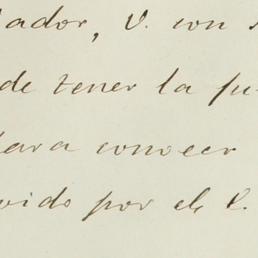 ador, V. con
de tener la
para conocer
vido por el C.